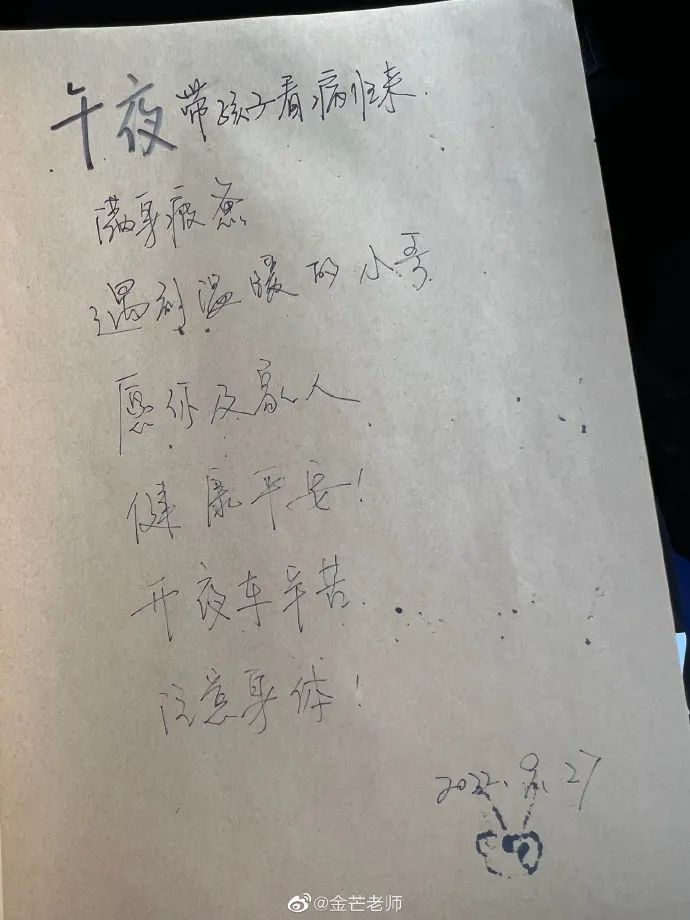 午夜带孩子看病归来.
满身疲惫
遇到温暖的小哥
愿你及家人
健康平安!
开夜车辛苦
注意身体!
2022. 27
@金芒老师